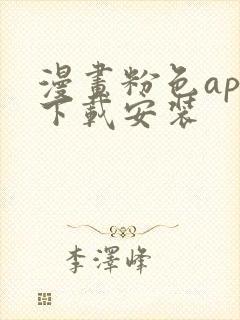 漫畫粉色ap
下載安裝
李澤峰